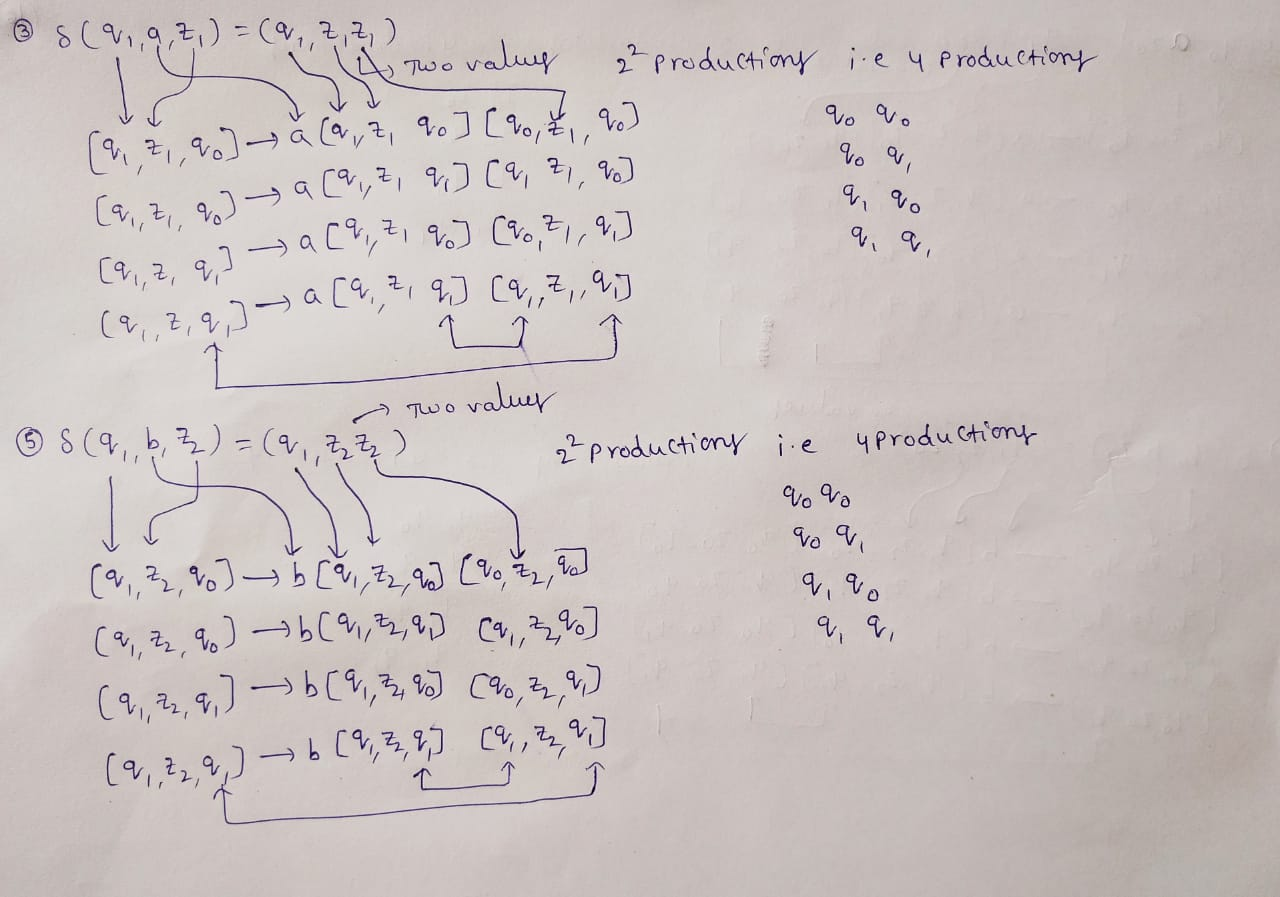 ③ δ(q₁, a, z₁) = (q₁, z₁z₁)
Two values 2² productions i.e 4 productions
[q₁, z₁, q₀] → a[q₁, z₁ q₀] [q₀, z₁, q₀] q₀ q₀
[q₁, z₁, q₀] → a[q₁, z₁ q₁] [q₁ z₁, q₀] q₀ q₁
[q₁, z₁ q₁] → a[q₁, z₁ q₀] [q₀, z₁, q₁] q₁ q₀
[q₁, z₁ q₁] → a[q₁, z₁ q₁] [q₁, z₁, q₁] q₁ q₁
Two values
⑤ δ(q₁, b, z₂) = (q₁, z₂z₂) 2² productions i.e 4 productions
[q₁, z₂, q₀] → b[q₁, z₂, q₀] [q₀, z₂, q₀] q₀ q₀
[q₁, z₂, q₀] → b[q₁, z₂, q₁] [q₁, z₂, q₀] q₀ q₁
[q₁, z₂, q₁] → b[q₁, z₂, q₀] [q₀, z₂, q₁] q₁ q₀
[q₁, z₂, q₁] → b[q₁, z₂, q₁] [q₁, z₂, q₁] q₁ q₁